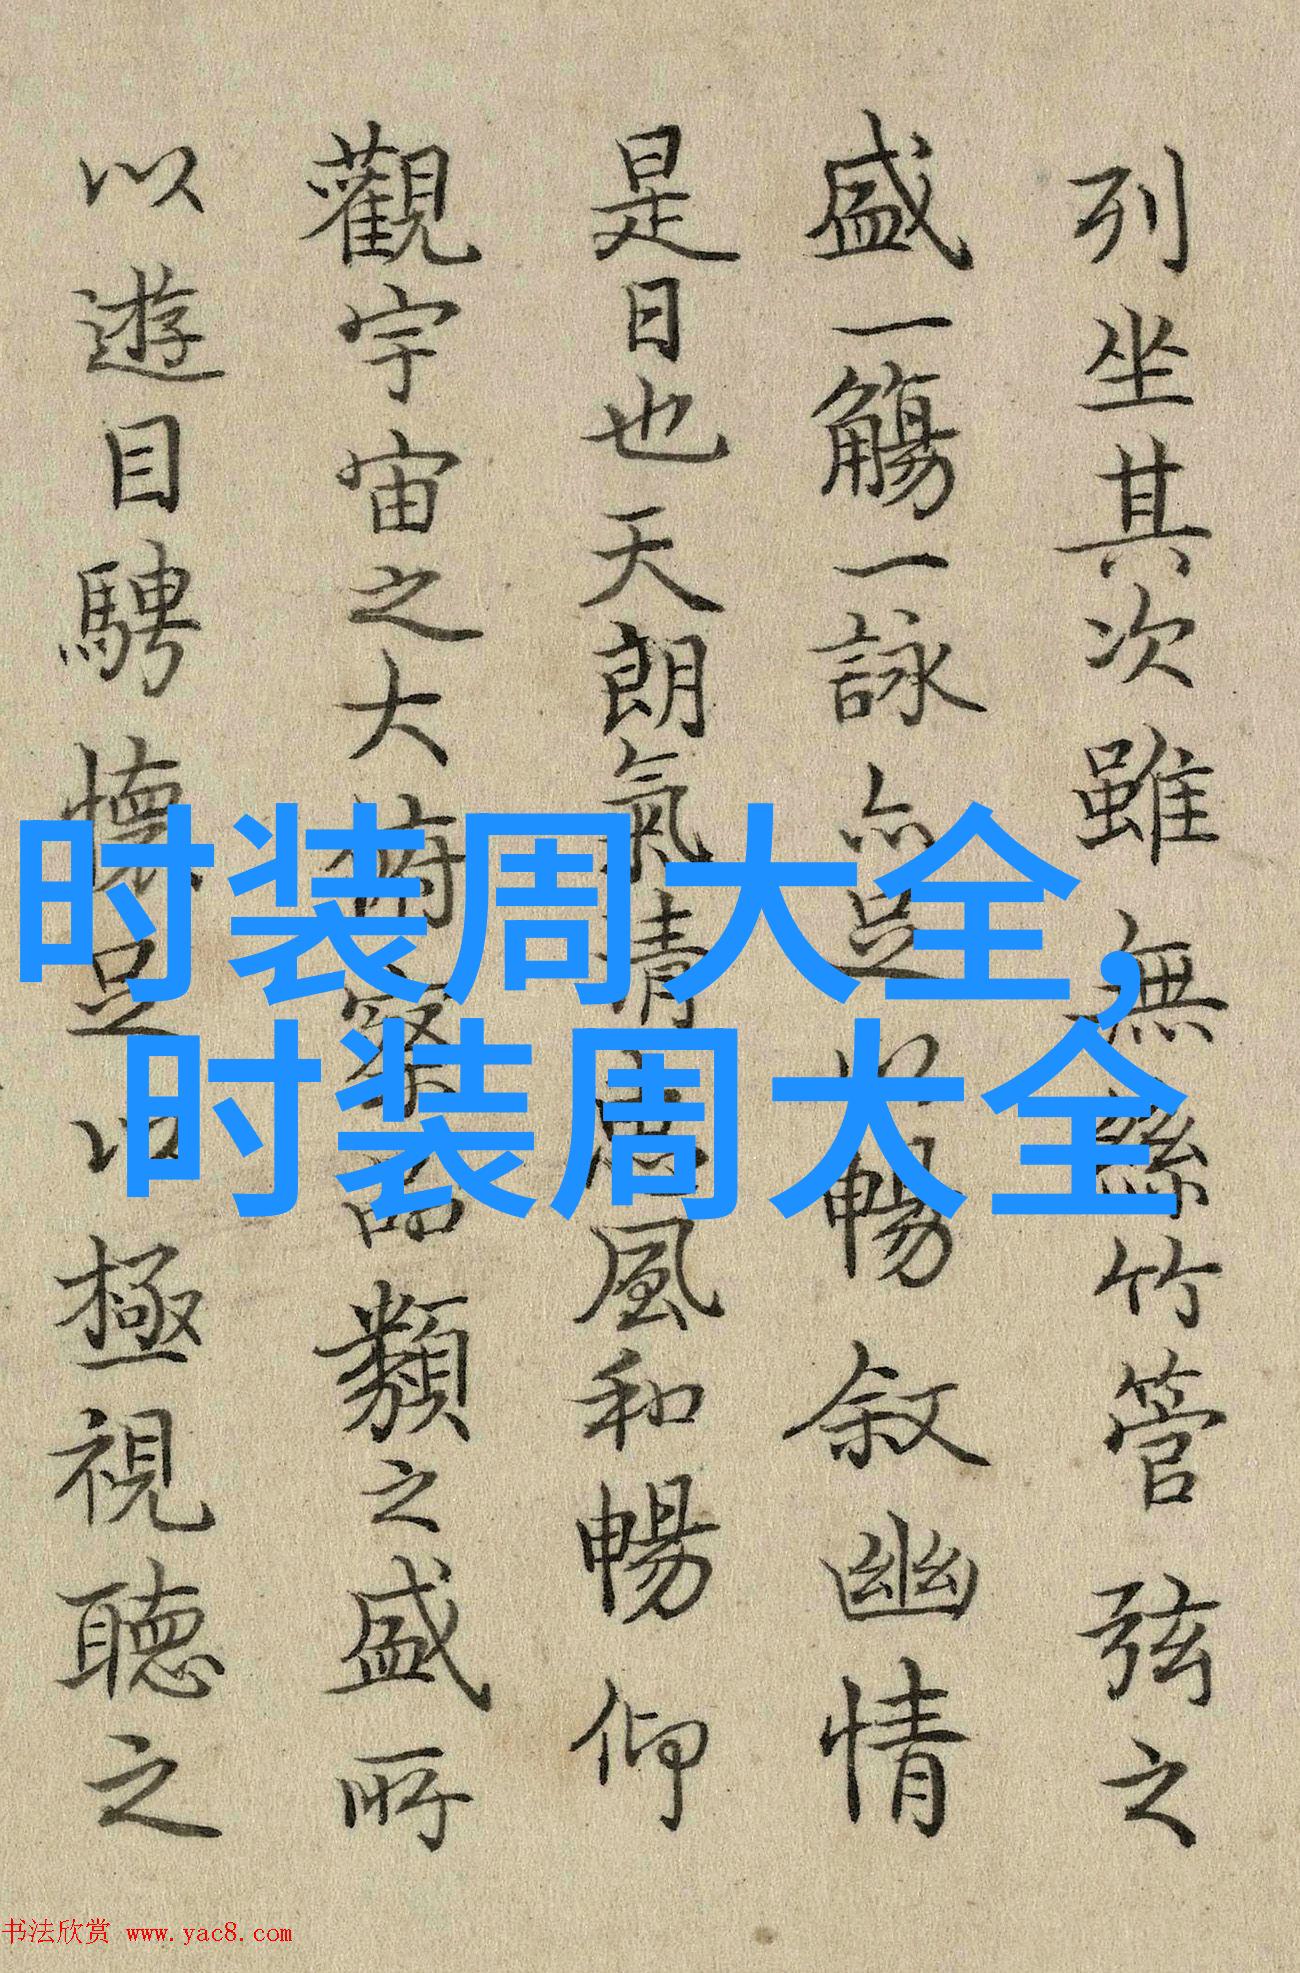 列坐其次雖無絲竹管弦之
盛一觴一詠亦足以暢叙幽情
是日也天朗氣清惠風和暢仰
觀宇宙之大俯察品類之盛所
以遊目騁懷足以極視聽之
时装周大全,
时装周大全
书法欣赏 www.yac8.com